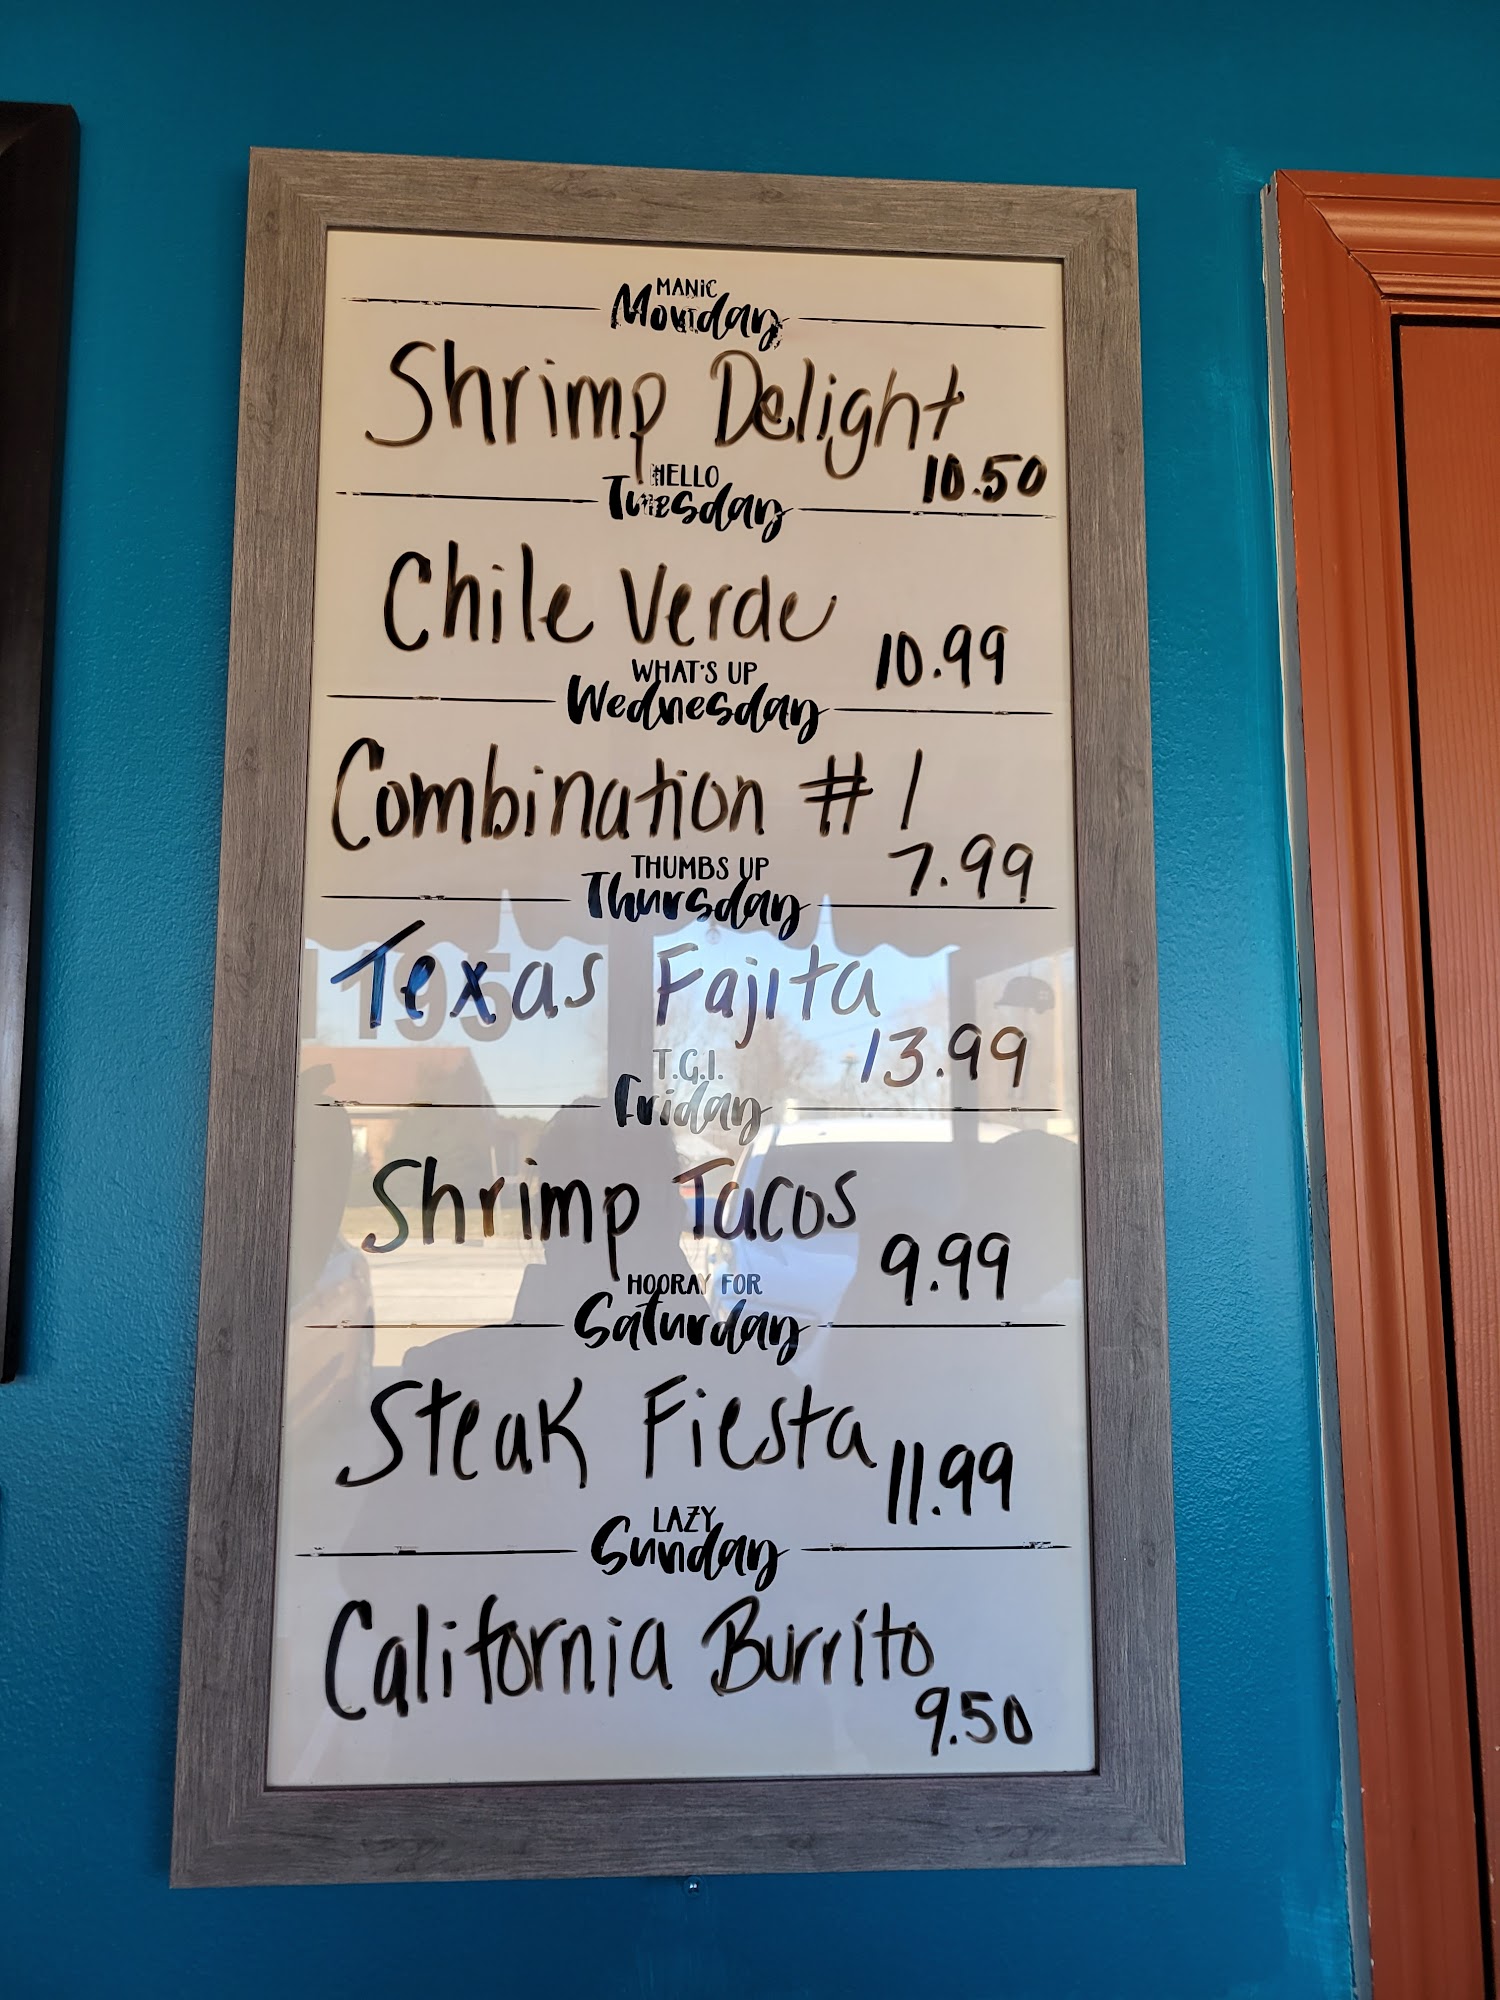 MANIC
Monday
Shrimp Delight
10.50
HELLO
Tuesday
Chile Verde
10.99
WHAT'S UP
Wednesday
Combination #1
7.99
THUMBS UP
Thursday
Texas Fajita
13.99
T.G.I.
Friday
Shrimp Tacos
9.99
HOORAY FOR
Saturday
Steak Fiesta
11.99
LAZY
Sunday
California Burrito
9.50
195